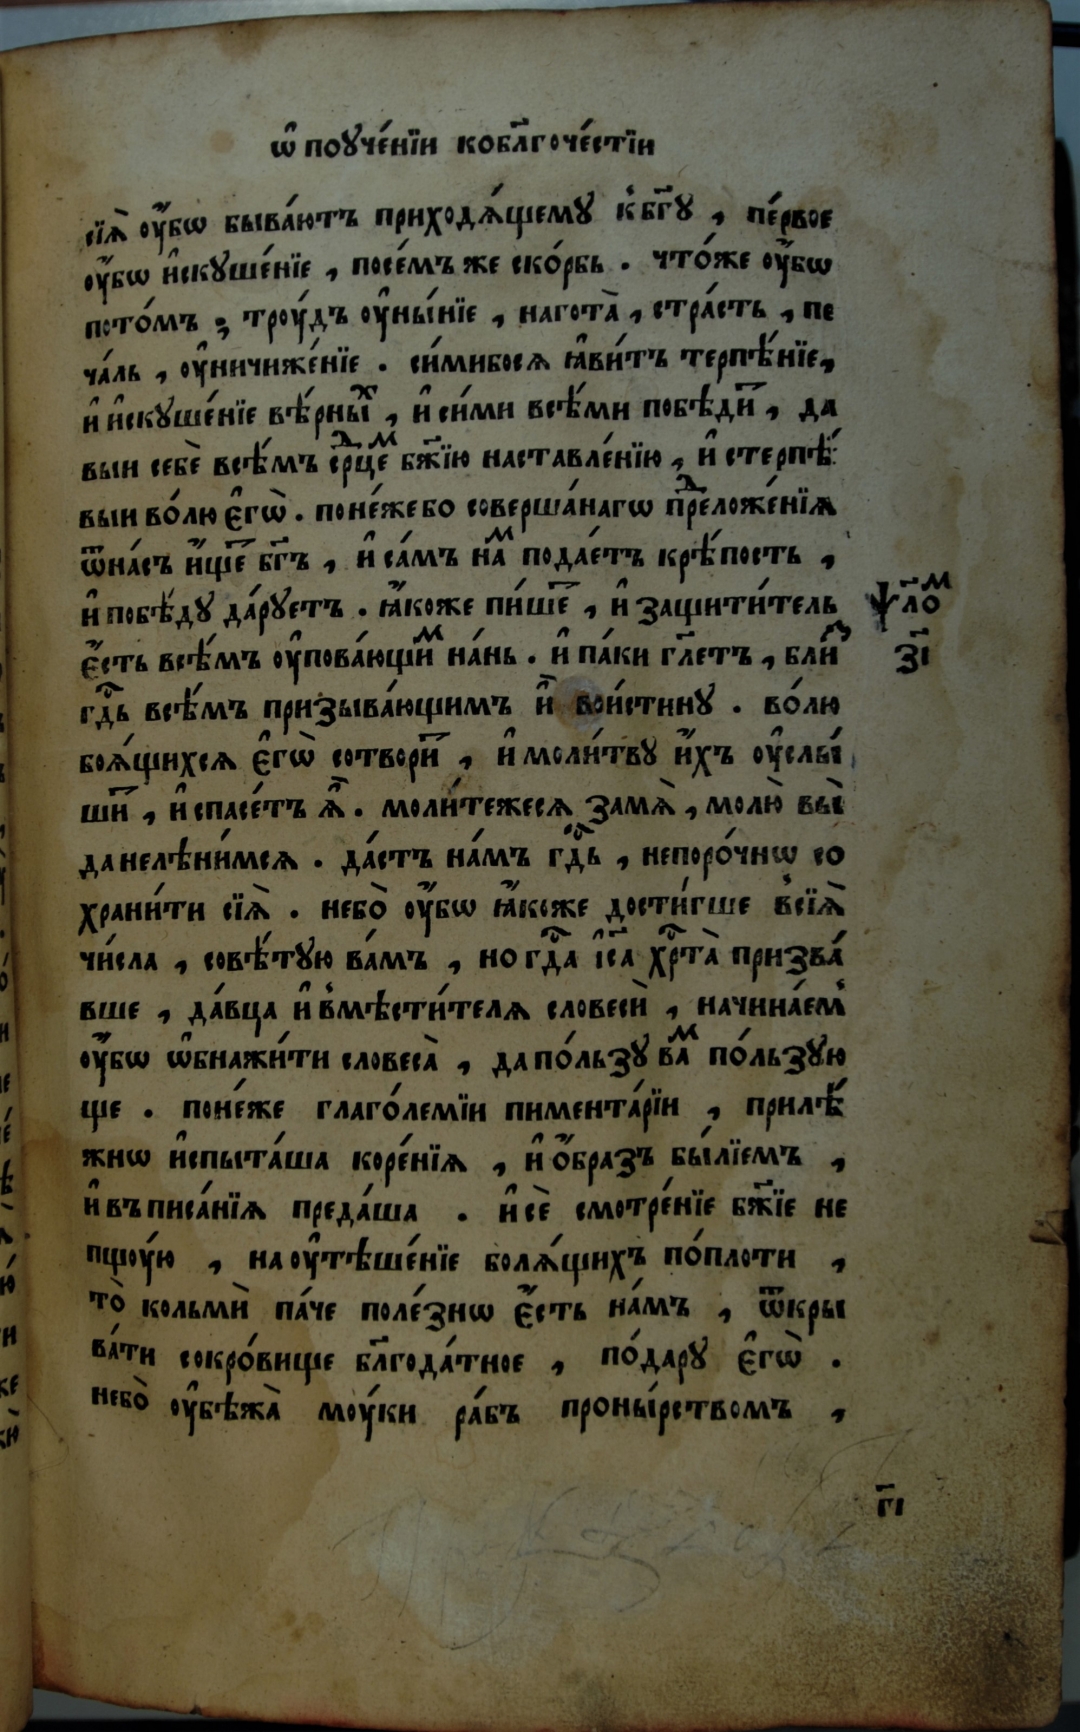 ѡ҆ поꙋче́нїи кобл҃гоче́стїи
сїѧ̀ ᲂу҆́бѡ быва́ютъ приходѧ́щемꙋ к҆бг҃ꙋ , пе́рвое
ᲂу҆́бѡ и҆скꙋше́нїе , посе́мъ же ско́рбь . что́же ᲂу҆́бѡ
пото́мъ ; трᲂу́дъ ᲂу҆ны́нїе , нагота̀ , стра́сть , пе
ча́ль , ᲂу҆ничиже́нїе . си́мибосѧ ꙗ҆ви́тъ терпѣ́нїе ,
и҆ и҆скꙋше́нїе вѣ́рныⷯ , и҆ си́ми всѣ́ми побѣди҃ , да
выи себѐ всѣ́мъ срⷣцеⷨ бж҃їю наставле́нїю , и҆ стерпѣ́
выи во́лю є҆гѡ̀ . поне́жебо соверша́нагѡ преⷣложе́нїѧ
ѿна́съ и҆́ще҃ бг҃ъ , и҆ са́мъ наⷨ подае́тъ крѣ́пость ,
и҆ побѣ́дꙋ да́рꙋетъ . ꙗ҆́коже пи́ше҃ , и҆ защити́тель
є҆́сть всѣ́мъ ᲂу҆пова́ющиⷨ на́нь . и҆ па́ки гл҃етъ , бли́
гдⷭ҇ь всѣ́мъ призыва́ющимъ и҆̀ вои́стинꙋ . во́лю
боѧ́щихсѧ є҆гѡ̀ сотвори҃ , и҆ моли́твꙋ и҆́хъ ᲂу҆слы́
ши҃ , и҆ спасе́тъ ѧ҆̀ . моли́тежесѧ замѧ̀ , молю̀ вы̀
данелѣни́мсѧ . да́стъ на́мъ гдⷭ҇ь , непоро́чнѡ со
храни́ти сїѧ̀ . небо̀ ᲂу҆́бѡ ꙗ҆́коже дости́гше в҆сїѧ̀
чи́сла , совѣ́тꙋю ва́мъ , но гдⷭ҇а і҆с҃а хрⷭ҇та̀ призва́
вше , да́вца и҆ в҆мѣсти́телѧ словесѝ , начина́ем̾
ᲂу҆́бѡ ѡ҆бнажи́ти словеса̀ , да по́льзꙋ ваⷨ по́льзꙋю
ще . поне́же глаго́лемїи пимента́рїи , прилѣ́
жнѡ и҆спыта́ша коре́нїѧ , и҆ ѻ҆́бразъ бы́лїемъ ,
и҆ въ писа́нїѧ преда́ша . и҆ сѐ смотре́нїе бж҃їе не
пщᲂу́ю , на ᲂу҆тѣше́нїе болѧ́щихъ по́плоти ,
то̀ кольмѝ па́че поле́знѡ є҆́сть на́мъ , ѿкры
ва́ти сокро́вище бл҃года́тное , по́дарꙋ є҆гѡ̀ .
небо̀ ᲂу҆бѣжа̀ мᲂу́ки ра́бъ проны́рствомъ ,
ѱл҃оⷨ
з҃і
г҃і